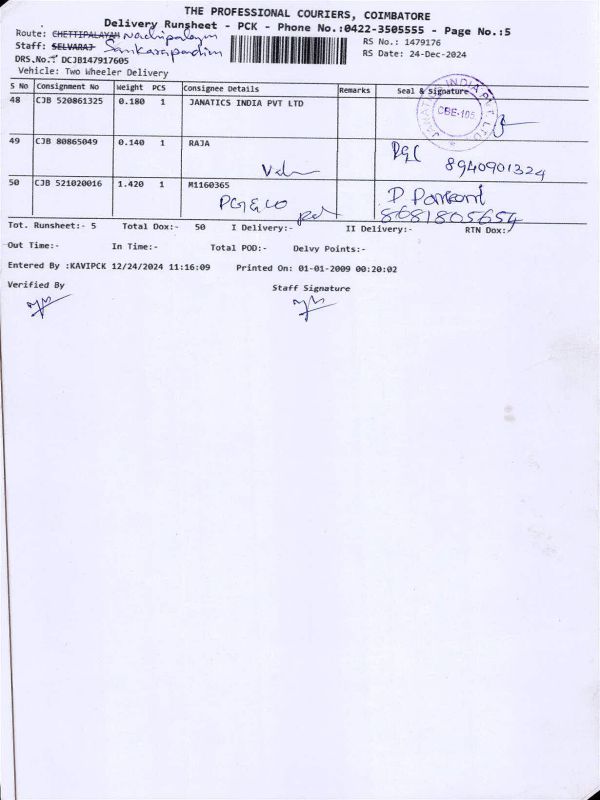 THE PROFESSIONAL COURIERS, COIMBATORE
Delivery Runsheet - PCK - Phone No.:0422-3505555 - Page No.:5
Route: CHETTIPALAYAM Nachipalayam
Staff: SELVARAJ Sankarapandian
RS No.: 1479176
DRS.No.: DCJB147917605
RS Date: 24-Dec-2024
Vehicle: Two Wheeler Delivery
S No Consignment No Weight PCS Consignee Details Remarks Seal & Signature
48 CJB 520861325 0.180 1 JANATICS INDIA PVT LTD
JANATICS INDIA PVT. LTD.
CBE-105
49 CJB 80865049 0.140 1 RAJA
8940901324
50 CJB 521020016 1.420 1 M1160365
8681805654
Tot. Runsheet:- 5 Total Dox:- 50 I Delivery:- II Delivery:- RTN Dox:-
Out Time:- In Time:- Total POD:- Delvy Points:-
Entered By :KAVIPCK 12/24/2024 11:16:09 Printed On: 01-01-2009 00:20:02
Verified By Staff Signature